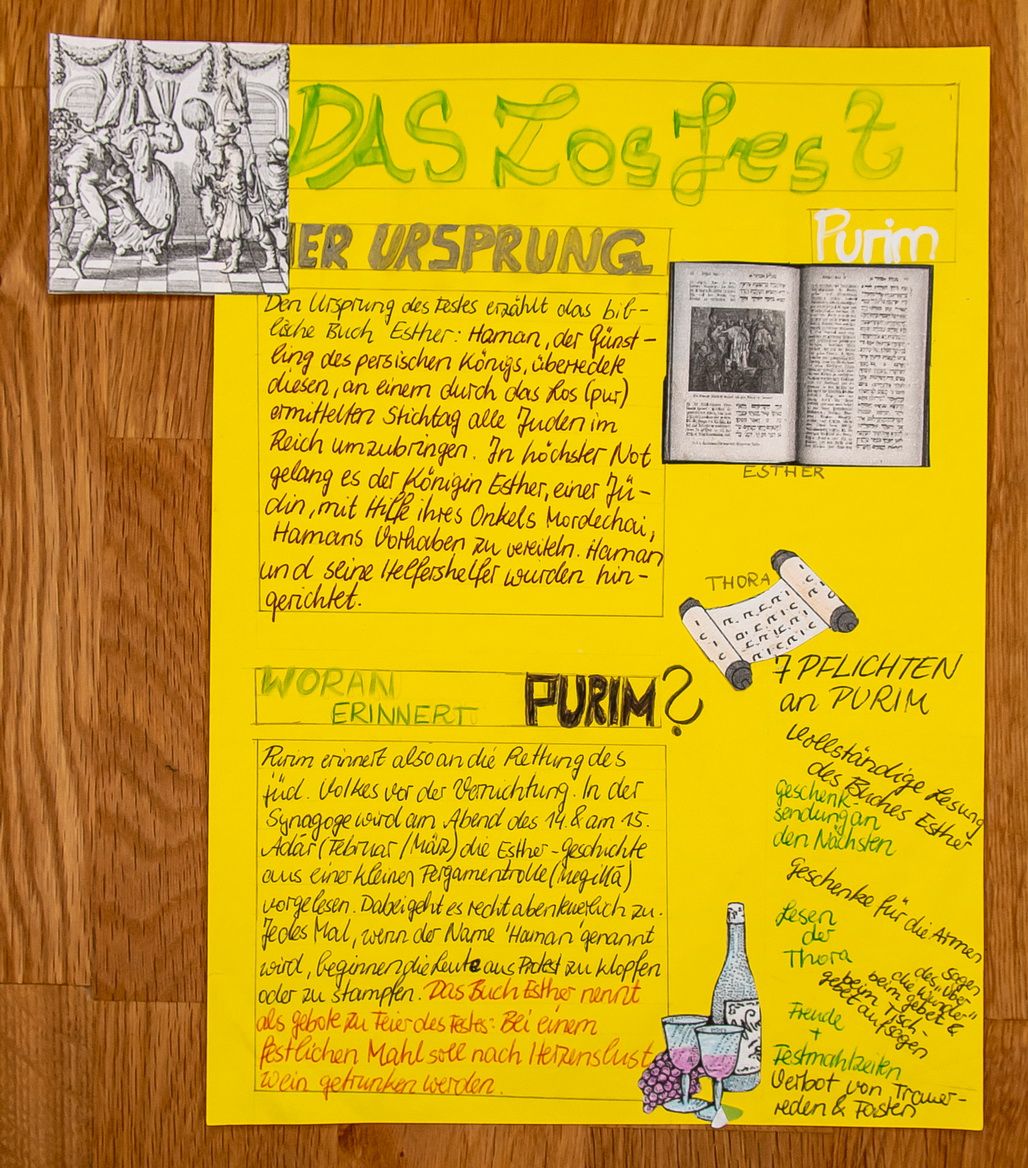 DAS Losfest
DER URSPRUNG
Purim
Den Ursprung des Festes erzählt das bib-
lische Buch Esther: Haman, der Günst-
ling des persischen Königs, überredete
diesen, an einem durch das Los (pur)
ermittelten Stichtag alle Juden im
Reich umzubringen. In höchster Not
gelang es der Königin Esther, einer Jü-
din, mit Hilfe ihres Onkels Mordechai,
Hamans Vorhaben zu vereiteln. Haman
und seine Helfershelfer wurden hin-
gerichtet.
ESTHER
THORA
WORAN
ERINNERT
PURIM?
Purim erinnert also an die Rettung des
jüd. Volkes vor der Vernichtung. In der
Synagoge wird am Abend des 14 & am 15.
Adár (Februar/März) die Esther-geschichte
aus einer kleinen Pergamentrolle (Megillá)
vorgelesen. Dabei geht es recht abenteuerlich zu.
Jedes Mal, wenn der Name 'Haman' genannt
wird, beginnen die Leute aus Protest zu klopfen
oder zu stampfen. Das Buch Esther nennt
als gebote zu Feier des Festes: Bei einem
festlichen Mahl soll nach Herzenslust
Wein getrunken werden.
7 PFLICHTEN
an PURIM
Vollständige Lesung
des Buches Esther
Geschenk-
sendung an
den Nächsten
Geschenke für die Armen
Lesen
der
Thora
Sagen
des "Über
die Wunder"
beim gebet &
beim Tisch-
gebet aufsagen
Freude
+
Festmahlzeiten
Verbot von Trauer-
reden & Fasten